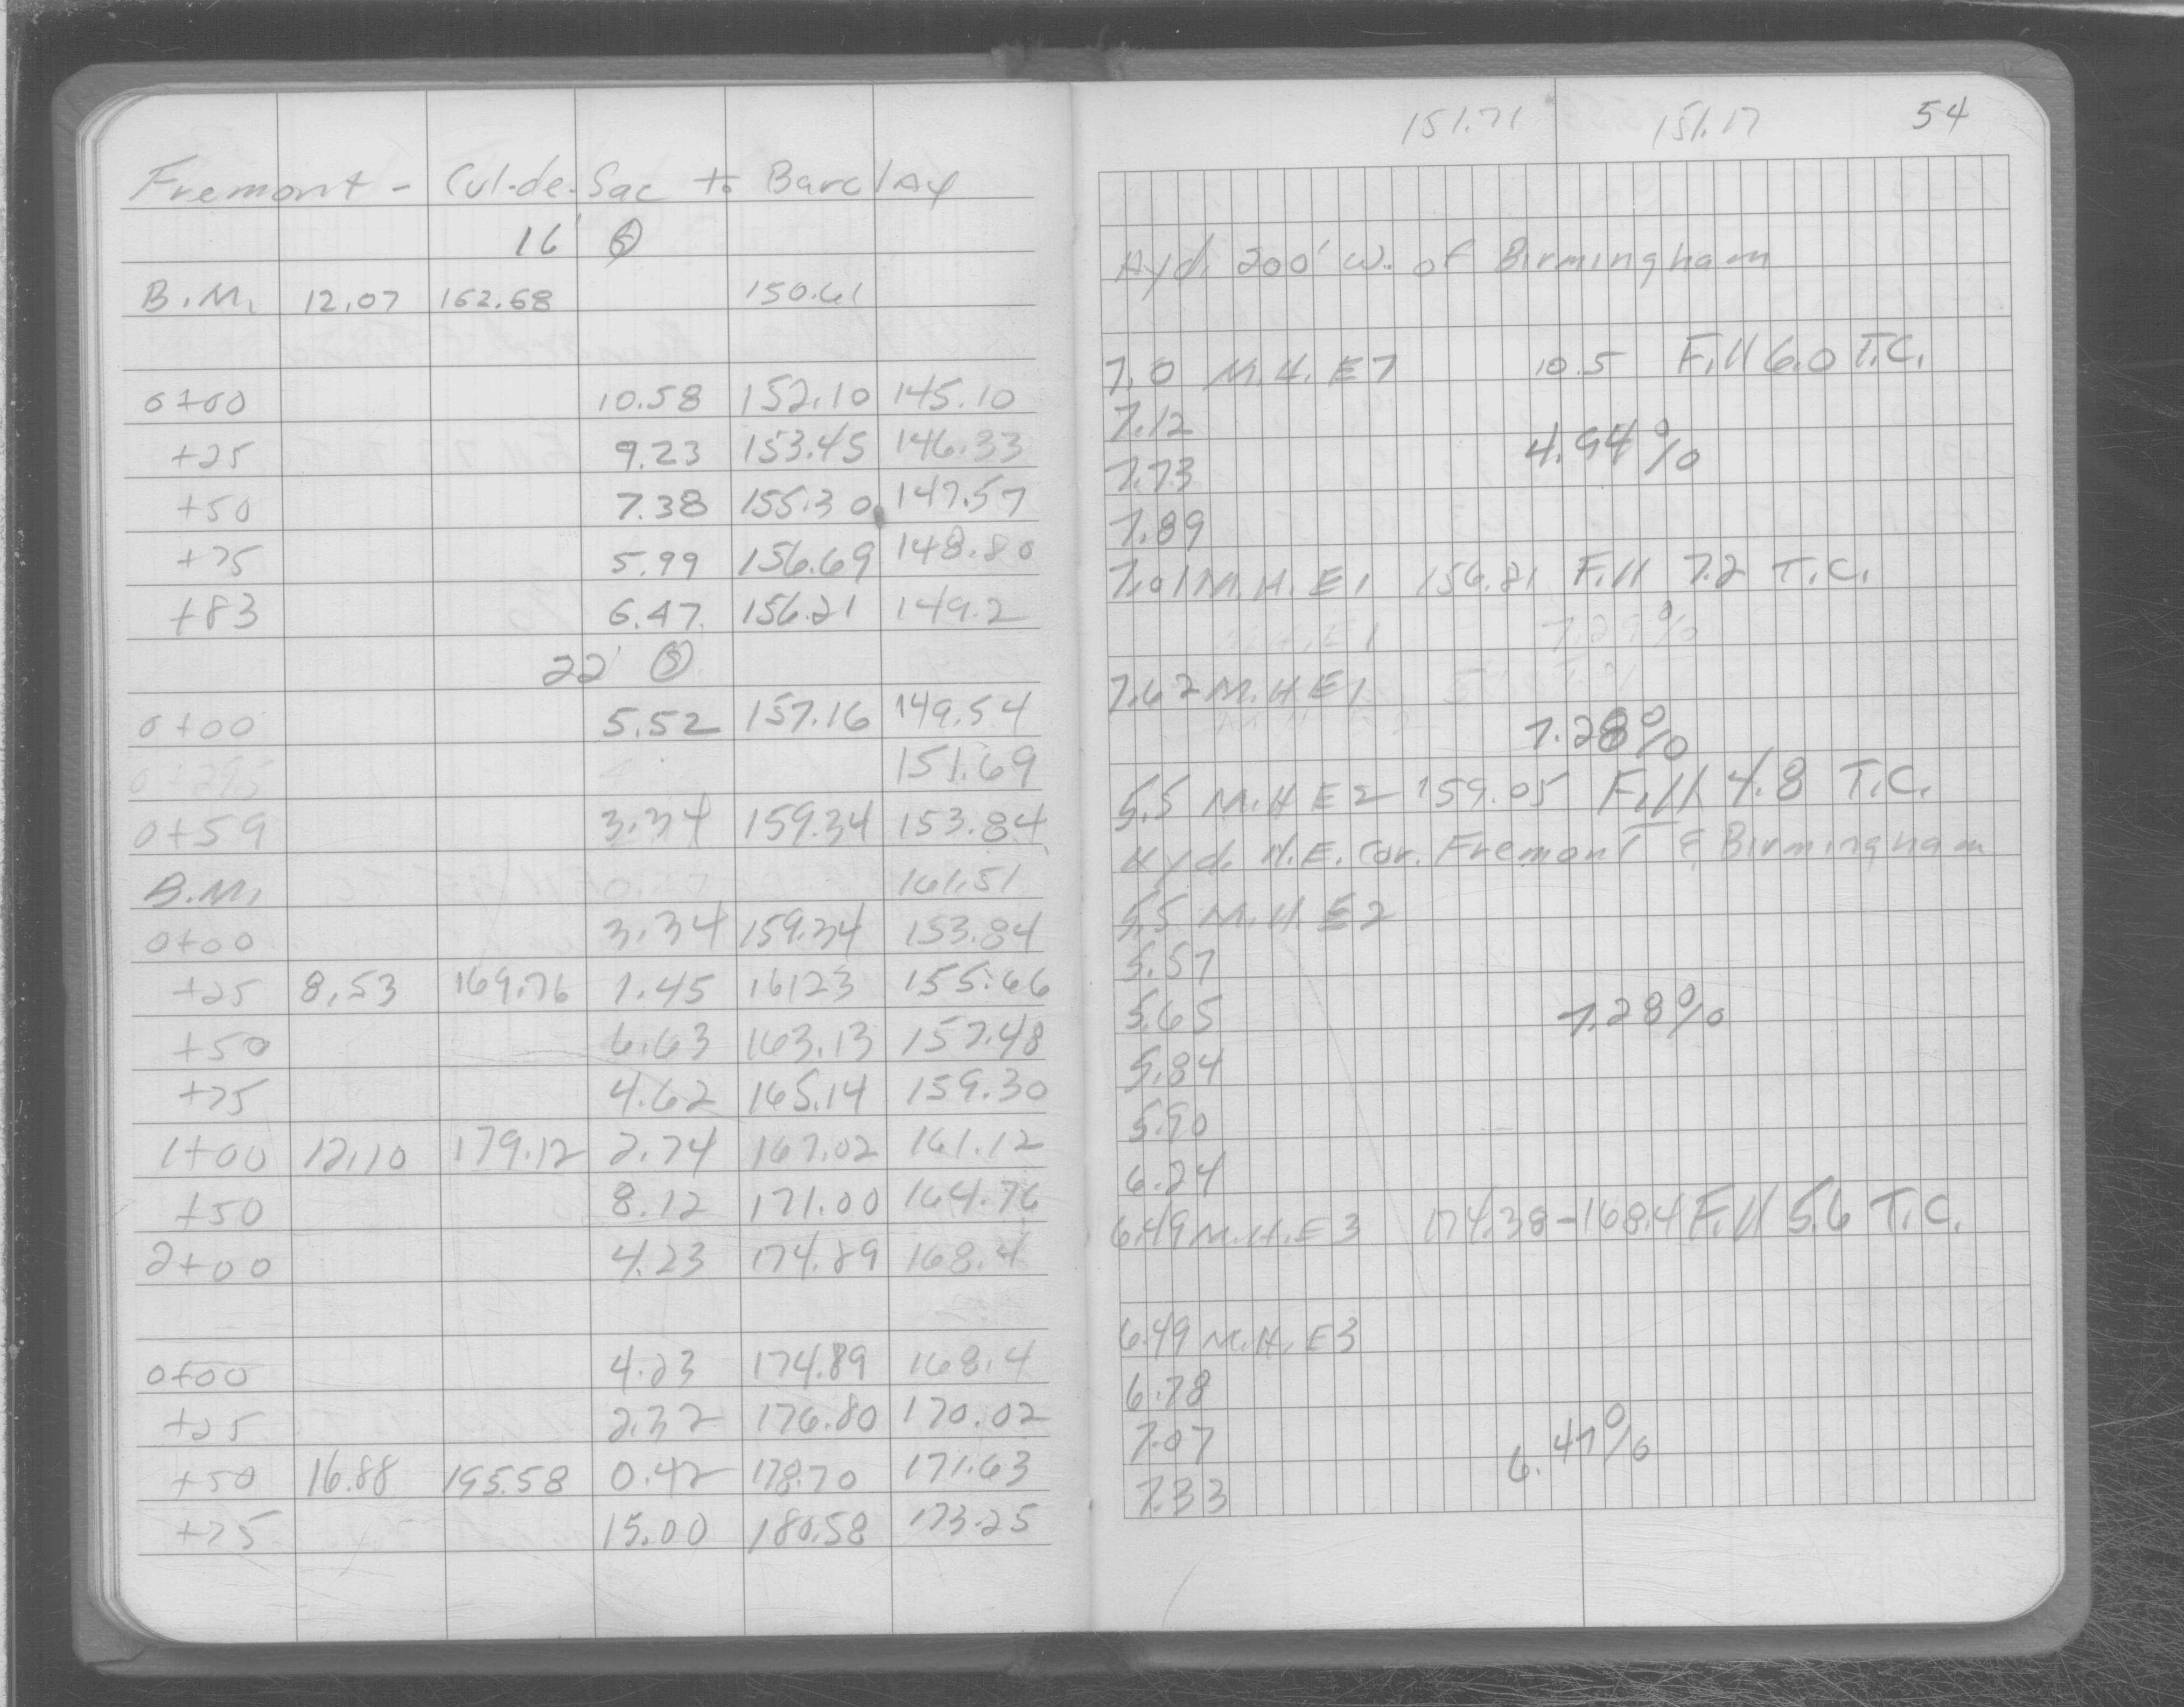 Fremont - Cul-de-Sac to Barclay
16' Ⓢ
B.M. 12.07 162.68 150.61
0+00 10.58 152.10 145.10
+25 9.23 153.45 146.33
+50 7.38 155.30 147.57
+75 5.99 156.69 148.80
+83 6.47 156.21 149.2
22' Ⓢ
0+00 5.52 157.16 149.54
0+29.5 151.69
0+59 3.34 159.34 153.84
B.M. 161.51
0+00 3.34 159.34 153.84
+25 8.53 169.76 1.45 161.23 155.66
+50 6.63 163.13 157.48
+75 4.62 165.14 159.30
1+00 12.10 179.12 2.74 167.02 161.12
+50 8.12 171.00 164.76
2+00 4.23 174.89 168.4
0+00 4.23 174.89 168.4
+25 2.32 176.80 170.02
+50 16.88 195.58 0.42 178.70 171.63
+75 15.00 180.58 173.25
151.71 151.17 54
Hyd. 200' W. of Birmingham
7.0 M.H. E7 10.5 Fill 6.0 T.C.
7.12
4.94%
7.73
7.89
7.01 M.H. E1 156.81 Fill 7.2 T.C.
M.H. E1 7.29%
7.62 M.H E1
7.28%
5.5 M.H E2 159.05 Fill 4.8 T.C.
Hyd. N.E. Cor. Fremont & Birmingham
5.5 M.H. E2
5.57
5.65 7.28%
5.84
5.90
6.24
6.49 M.H. E3 174.38-168.4 Fill 5.6 T.C.
6.49 M.H. E3
6.78
7.07 6.47%
7.33